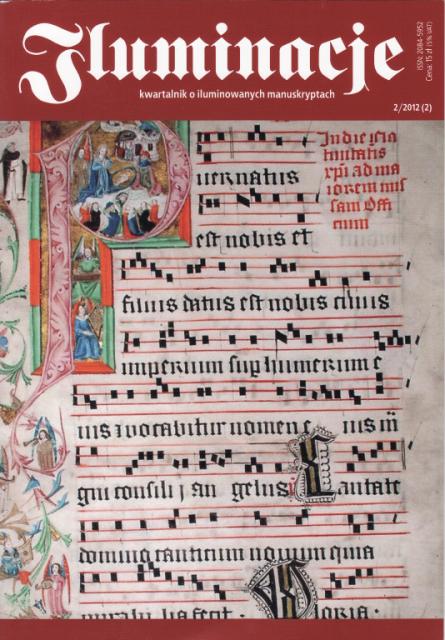 Iluminacje
kwartalnik o iluminowanych manuskryptach
ISSN: 2084-5952
Cena: 15 zł (5% VAT)
2/2012 (2)
In die
xp̄i ad ma
iorem mis
sam Offi
cium
P
uer natus
est nobis et
filius datus est nobis cuius
imperium sup humerum e
ius ⁊ vocabitur nomen e ius m̄
gni consili j an gelus Cantate
domino canticum nouum quia
mirabi lia fecit · Gloria ·